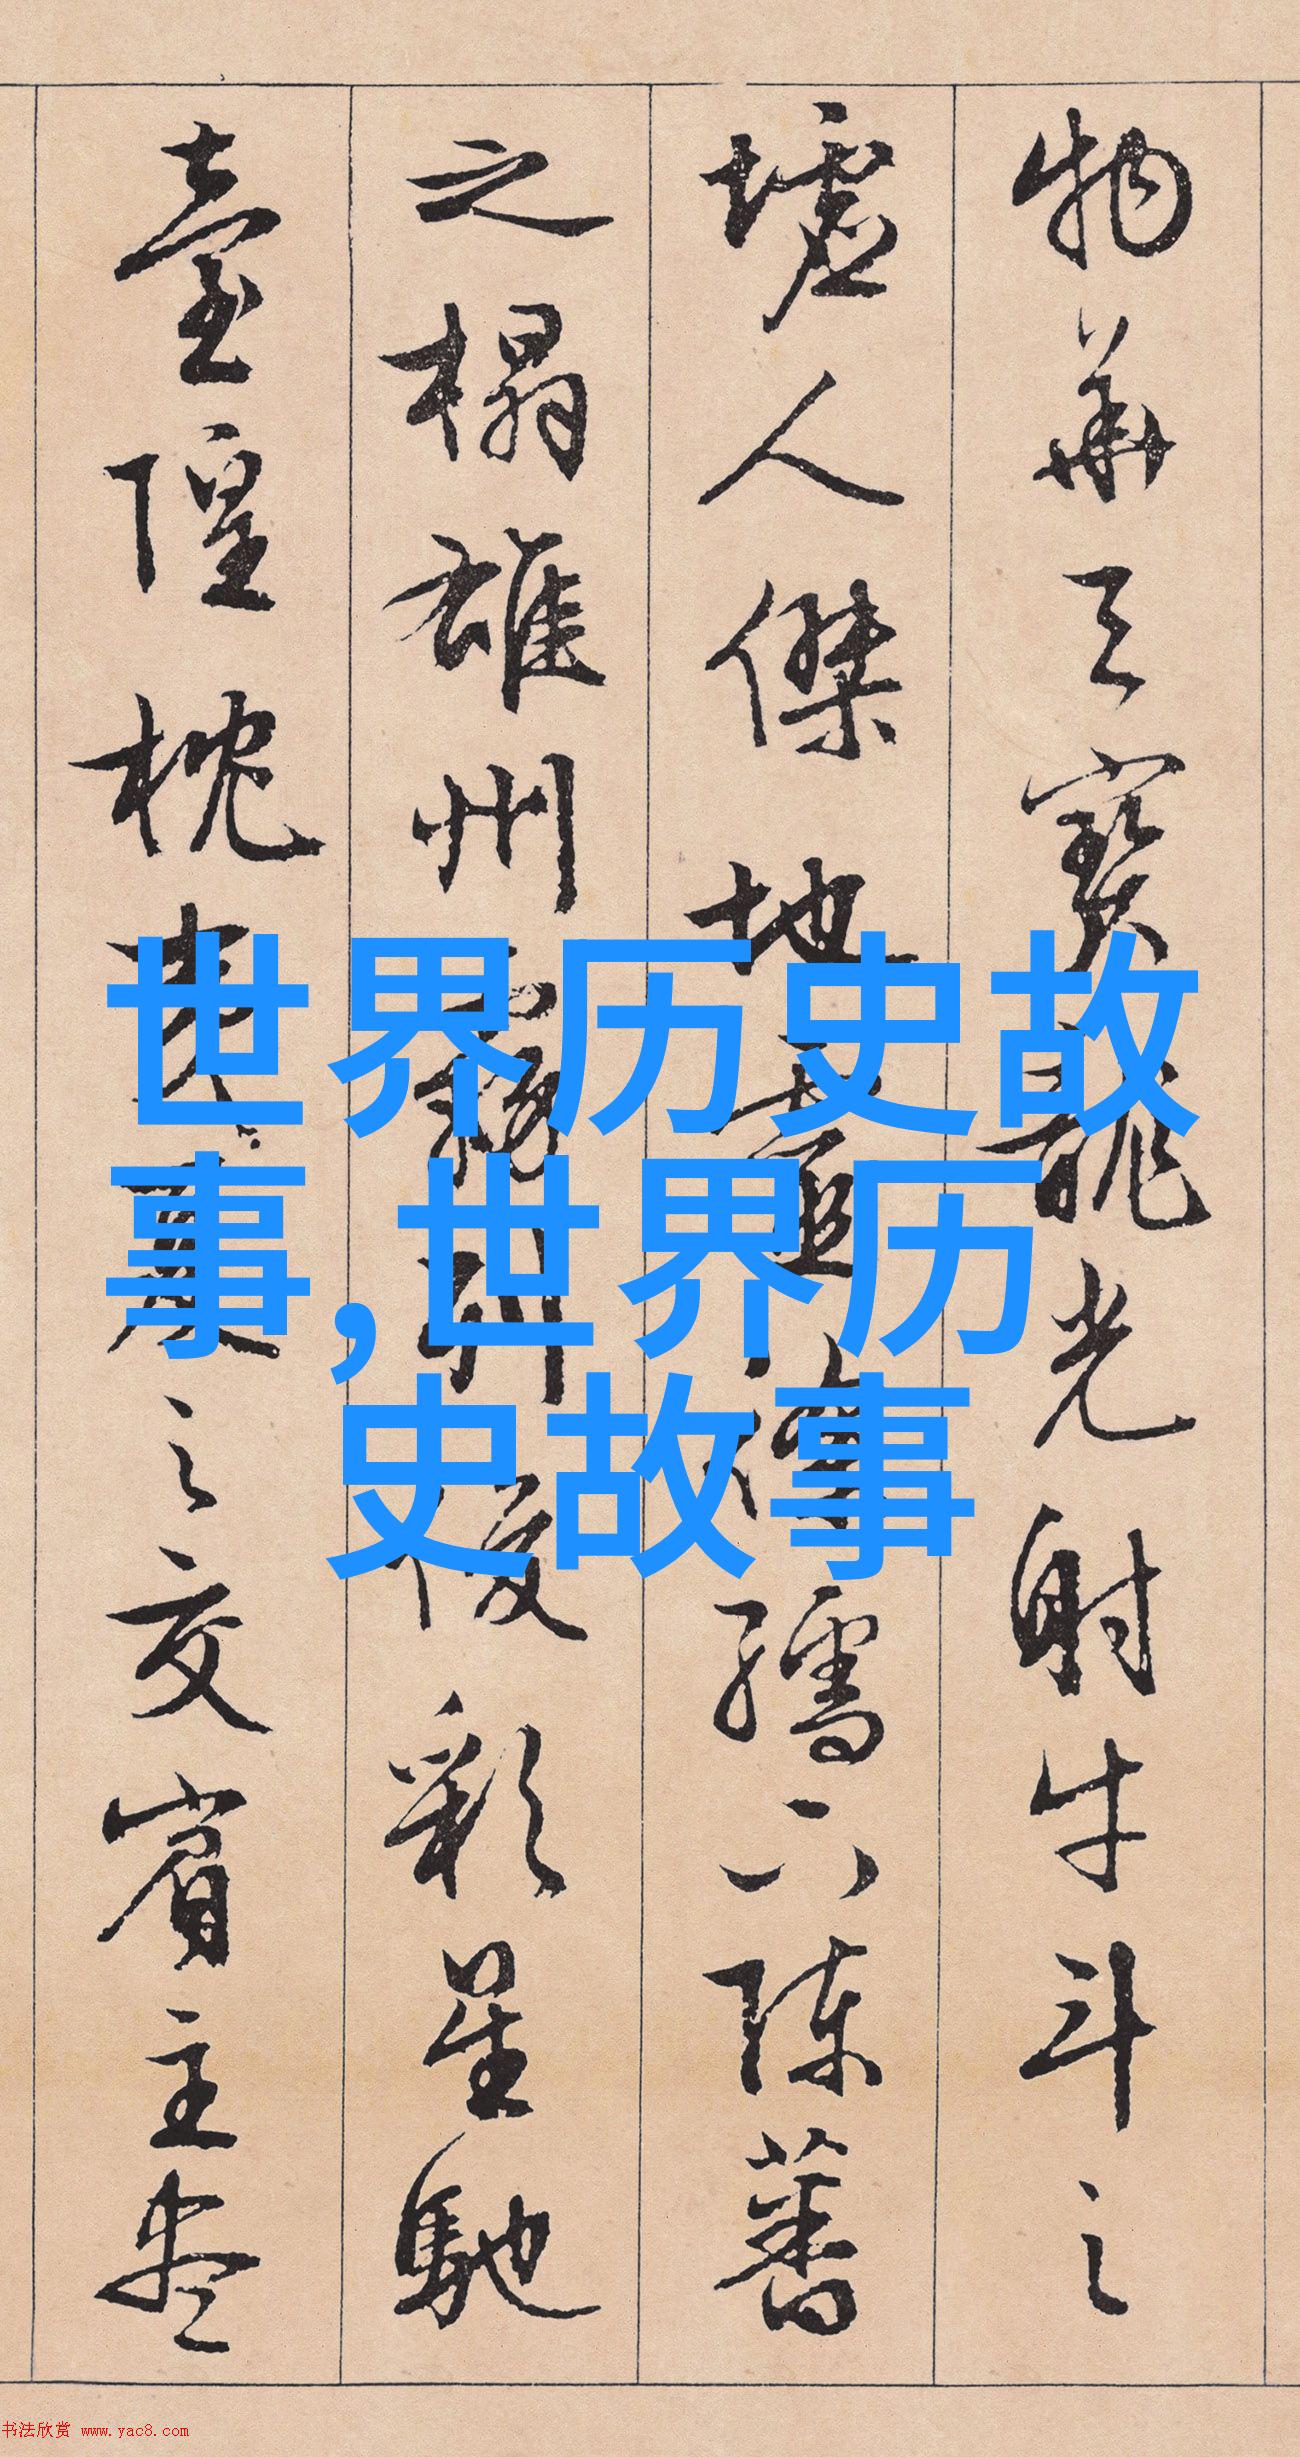 物華天寶龍光射牛斗之
墟人傑地靈徐孺下陳蕃
之榻雄州霧列俊彩星馳
臺隍枕夷夏之交賓主盡
世界历史故
事,世界历
史故事
书法欣赏 www.yac8.com